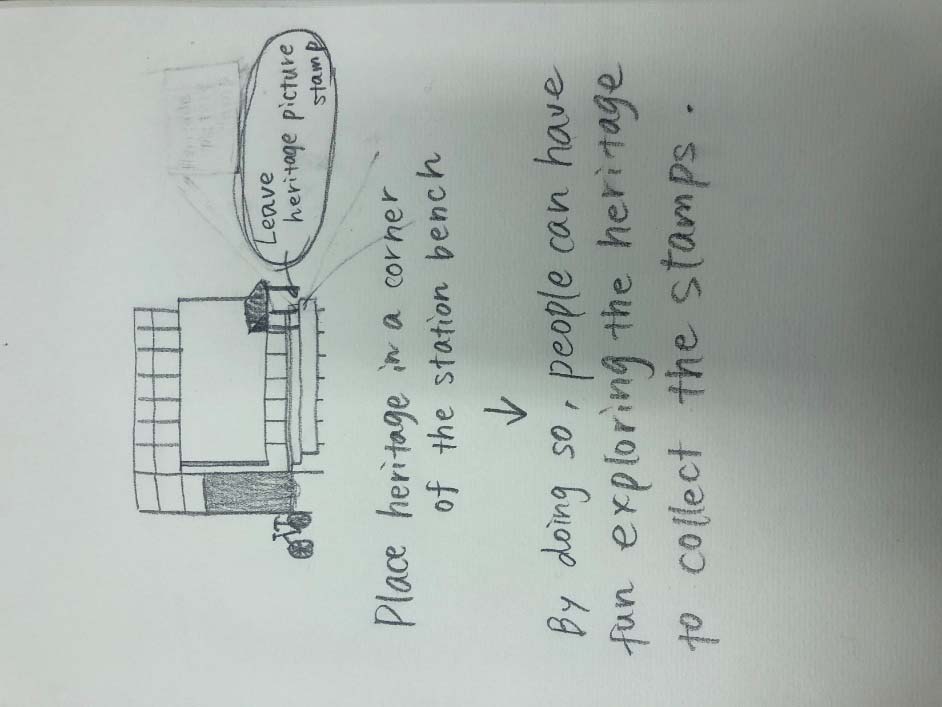 Leave
heritage picture
stamp
Place heritage in a corner
of the station bench
↓
By doing so, people can have
fun exploring the heritage
to collect the stamps.